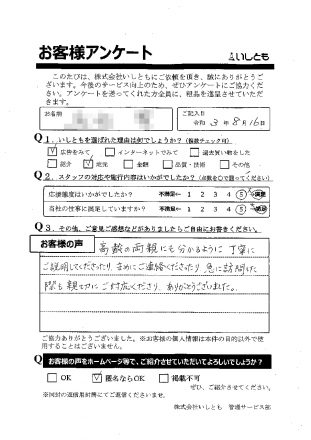 お客様アンケート
いしとも
このたびは、株式会社いしともにご依頼を頂き、誠にありがとうござ
います。今後のサービス向上のため、ぜひアンケートにご協力くださ
い。アンケートを送ってくれた方全員に、粗品を進呈させていただ
きます。
お名前
ご記入日
令和 3 年 8 月 16 日
Q1．いしともを選ばれた理由は何でしょうか？（複数チェック可）
広告をみて
インターネットでみて
過去買い物をした
紹介
地元
金額
品質・技術
その他
Q2．スタッフの対応や施行内容はいかがでしたか？（点数を〇で囲ってください）
応接態度はいかがでしたか？ 不満足← 1 2 3 4 5 →満足
当社の仕事に満足していますか？ 不満足← 1 2 3 4 5 →満足
Q3．その他、ご意見ご感想などがありましたらご自由にお書きください。
お客様の声
高齢の両親にも分かるように丁寧に
ご説明してくださったり、まめにご連絡くださったり、急に訪問した
際も親切にご対応くださり、ありがとうございました。
ご協力ありがとうございました。※お客様の個人情報は本件の目的以外で使
用することはございません。
Q お客様の声をホームページ等で、ご紹介させていただいてよろしいでしょうか？
OK
匿名ならOK
掲載不可
ぜひ、ご紹介させてください。
※同封の返信用封筒にてご返信くださいませ。
株式会社いしとも 管理サービス部